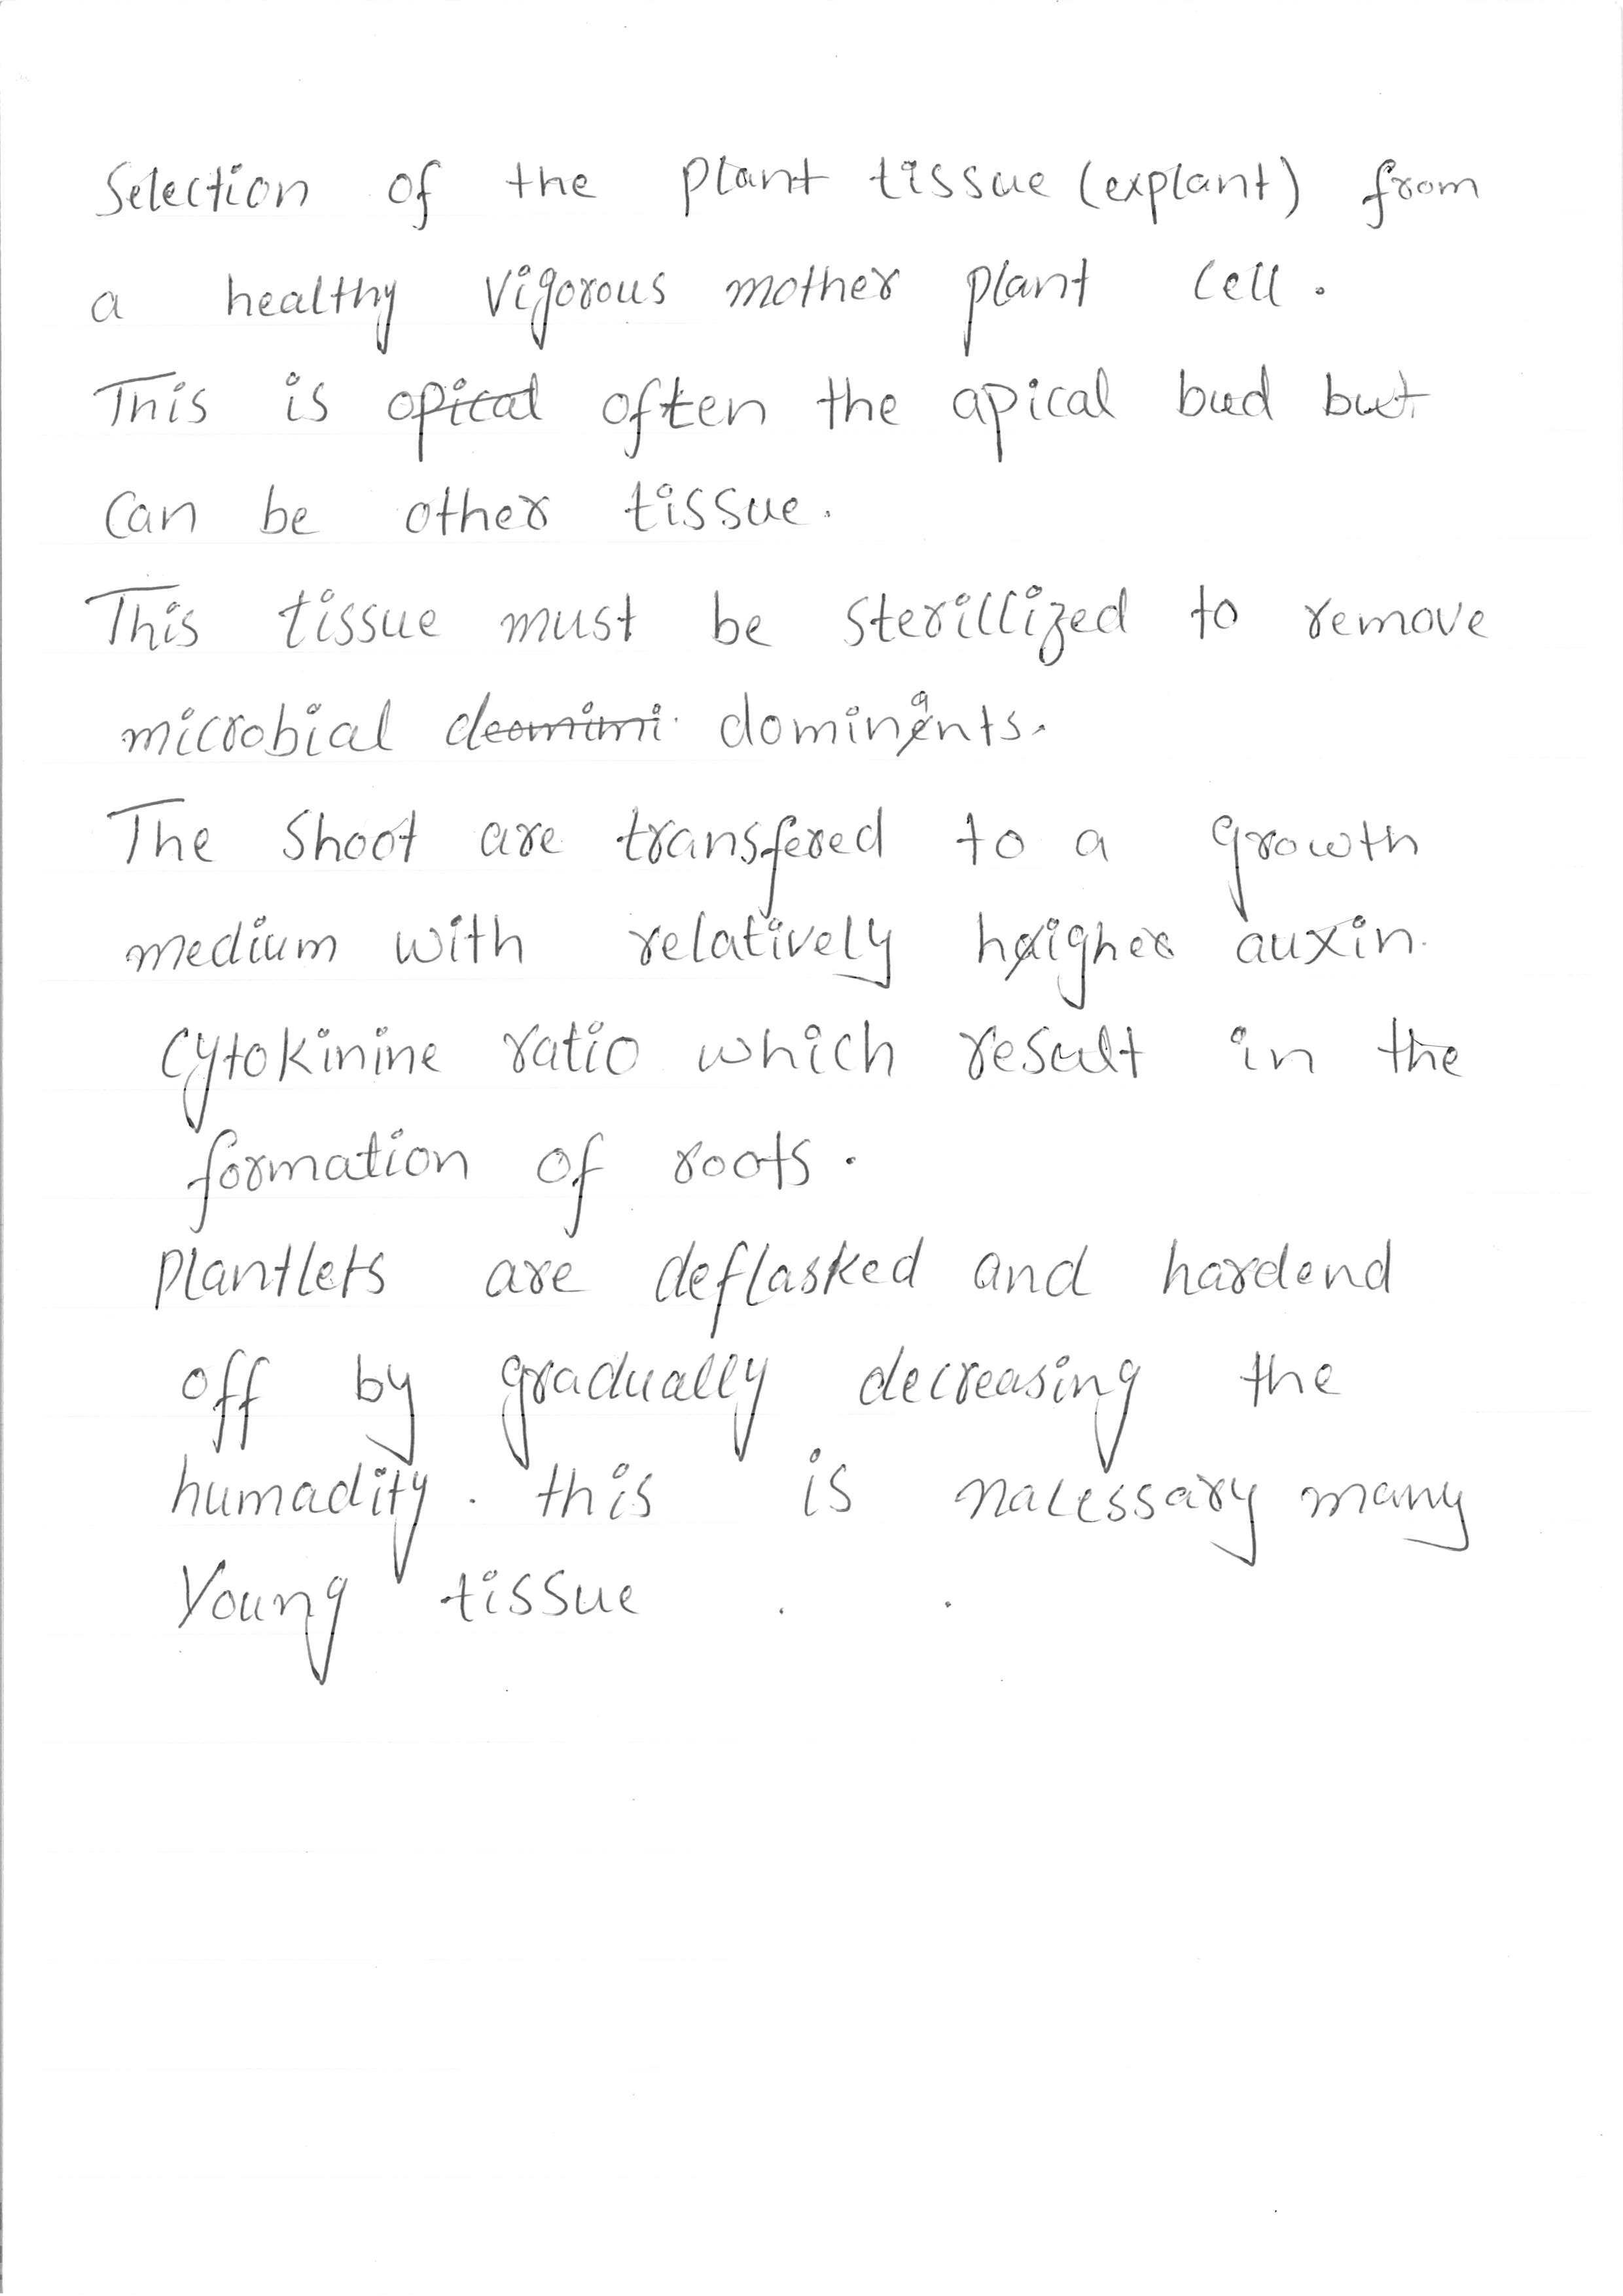 Selection of the plant tissue (explant) from
a healthy vigorous mother plant cell.
This is opical often the apical bud but
can be other tissue.
This tissue must be sterillized to remove
microbial deomimi dominants.
The shoot are transfered to a growth
medium with relatively higher auxin.
Cytokinine ratio which result in the
formation of roots.
Plantlets are deflasked and hardend
off by gradually decreasing the
humadity. this is nacessary many
Young tissue